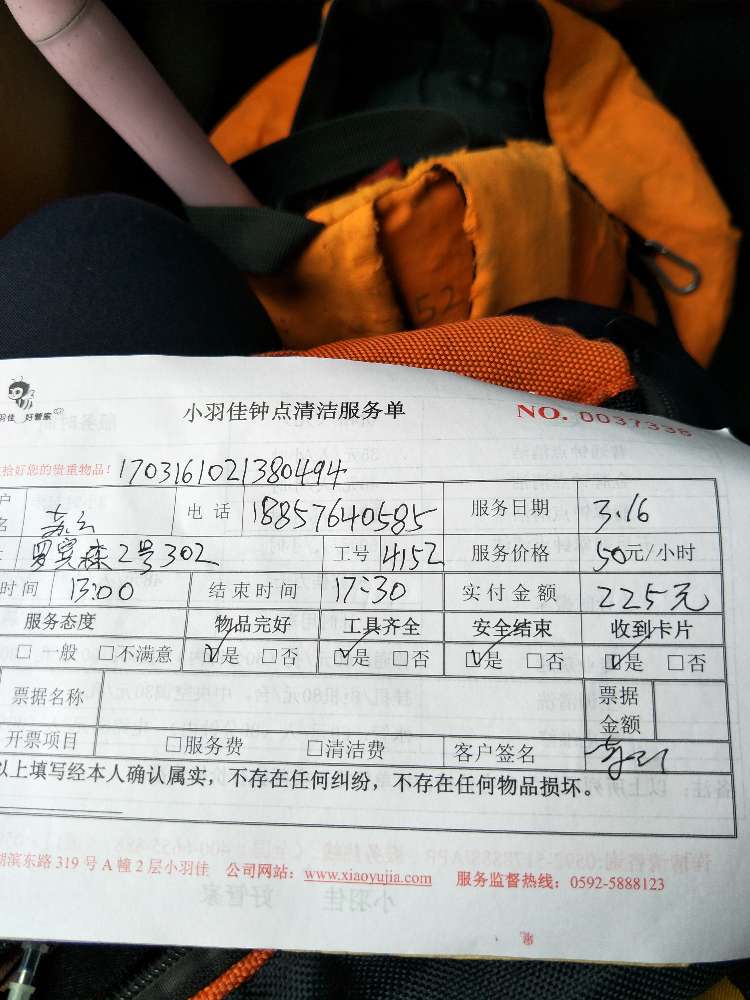 52
羽佳 好管家
小羽佳钟点清洁服务单
NO. 0037338
拾好您的贵重物品! 1703161021380494
户 电话 18857640585 服务日期 3.16
名
2号302 工号 4152 服务价格 50元/小时
时间 13:00 结束时间 17:30 实付金额 225元
服务态度 物品完好 工具齐全 安全结束 收到卡片
□一般 □不满意 ☑是 □否 ☑是 □否 ☑是 □否 ☑是 □否
票据名称 票据
金额
开票项目 □服务费 □清洁费 客户签名
以上填写经本人确认属实，不存在任何纠纷，不存在任何物品损坏。
湖滨东路 319 号 A 幢 2 层小羽佳 公司网站：www.xiaoyujia.com 服务监督热线：0592-5888123